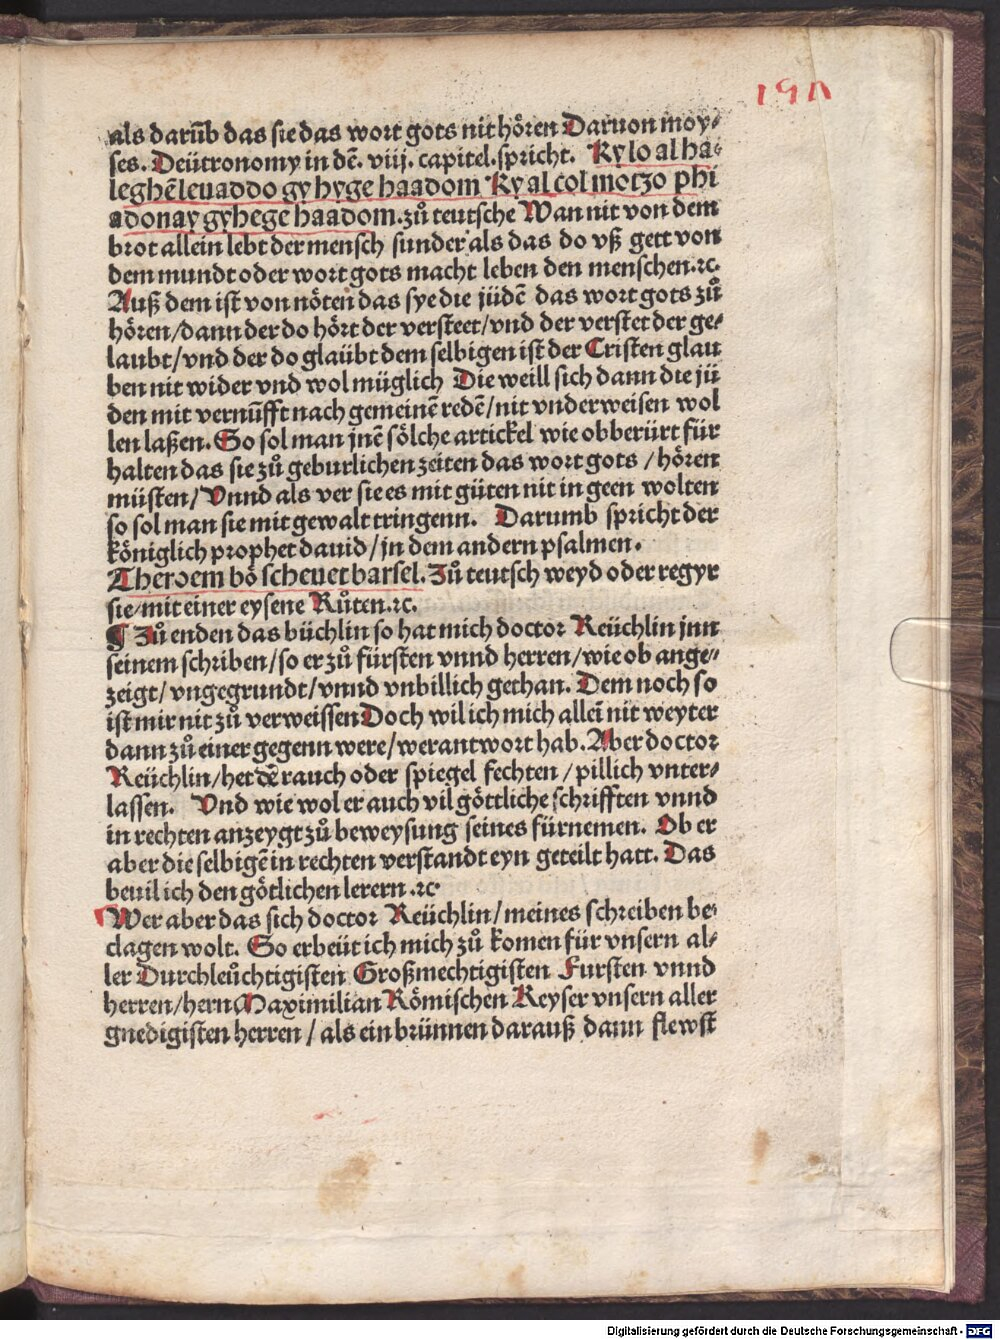 191
als darūb das sie das wort gots nit hören Daruon moy⸗
ses. Deütronomy in dē. viij. capitel. spricht. Ky lo al ha⸗
leghē leuaddo gy hyge haadom Ky al col motzo phi
adonay gyhege haadom. zů teutsche Wan nit von dem
brot allein lebt der mensch sunder als das do vß gett von
dem mundt oder wort gots macht leben den menschen. ꝛc.
Auß dem ist von nöten das sye die jüdē das wort gots zů
hören/dann der do hört der versteet/vnd der verstet der ge⸗
laubt/vnd der do glaübt dem selbigen ist der Cristen glau
ben nit wider vnd wol müglich Die weill sich dann die jü
den mit vernūfft nach gemeinē redē/nit vnderweisen wol
len laßen. So sol man jnē sölche artickel wie obberürt für
halten das sie zů geburlichen zeiten das wort gots /hören
müsten/Vnnd als ver sie es mit güten nit in geen wolten
so sol man sie mit gewalt tringenn. Darumb spricht der
königlich prophet dauid/jn dem andern psalmen.
Theroem bö scheuet barsel. Zů teutsch weyd oder regyr
sie/mit einer eysene Růten. ꝛc.
¶ Zů enden das büchlin so hat mich doctor Reüchlin jnn
seinem schriben/so er zů fürsten vnnd herren/wie ob ange⸗
zeigt/vngegrundt/vnnd vnbillich gethan. Dem noch so
ist mir nit zů verweissen Doch wil ich mich alleī nit weyter
dann zů einer gegenn were/werantwort hab. Aber doctor
Reüchlin/het dē rauch oder spiegel fechten /pillich vnter⸗
lassen. Vnd wie wol er auch vil göttliche schrifften vnnd
in rechten anzeygt zů beweysung seines fürnemen. Ob er
aber die selbigē in rechten verstandt eyn geteilt hatt. Das
beuil ich den götlichen lerern .ꝛc.
Wer aber das sich doctor Reüchlin/meines schreiben be⸗
clagen wolt. So erbeüt ich mich zů komen für vnsern al⸗
ler Durchleůchtigisten Großmechtigisten Fursten vnnd
herren/hern Maximilian Römischen Keyser vnsern aller
gnedigisten herren / als ein brünnen darauß dann flewst
Digitalisierung gefördert durch die Deutsche Forschungsgemeinschaft - DFG